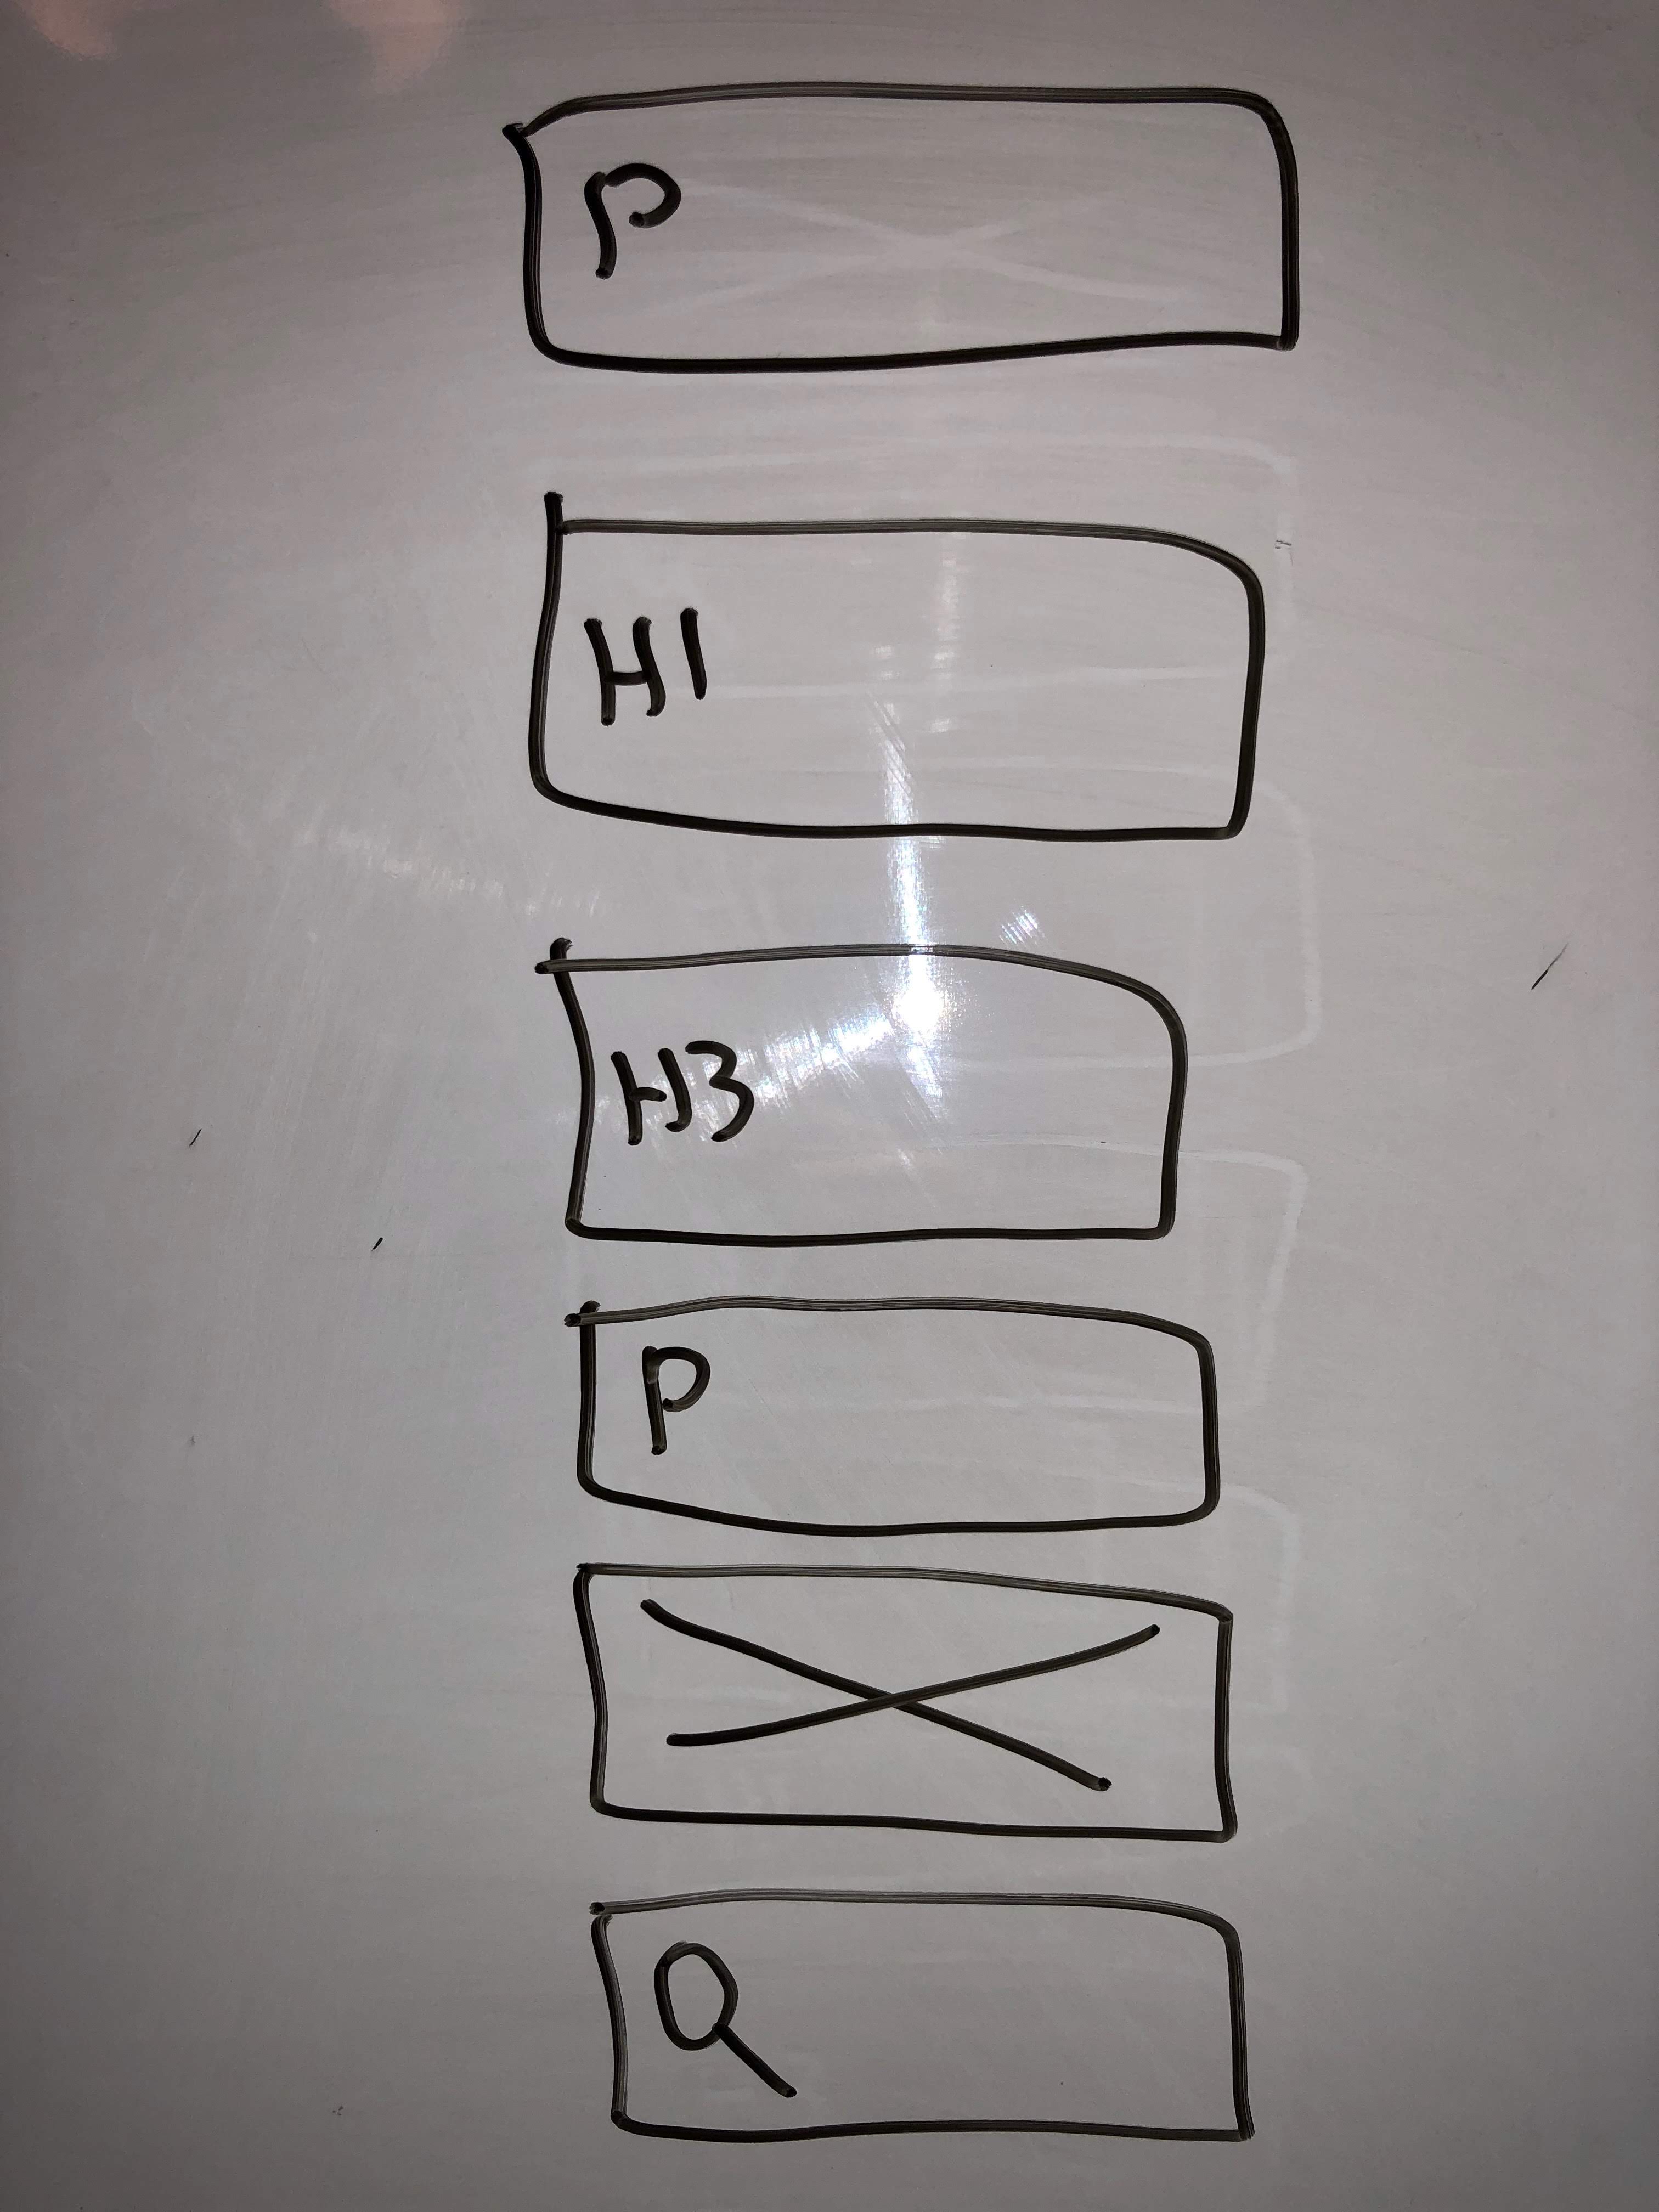 P
H1
H3
P
Q